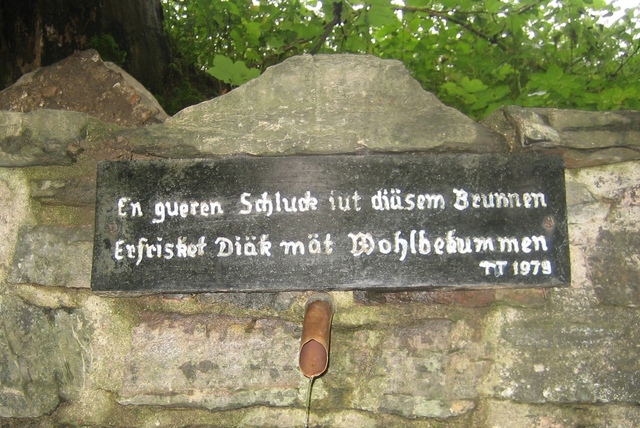 En gueren Schluck iut diüsem Brunnen
Erfrisket Diäk mät Wohlbekummen
TT 1979